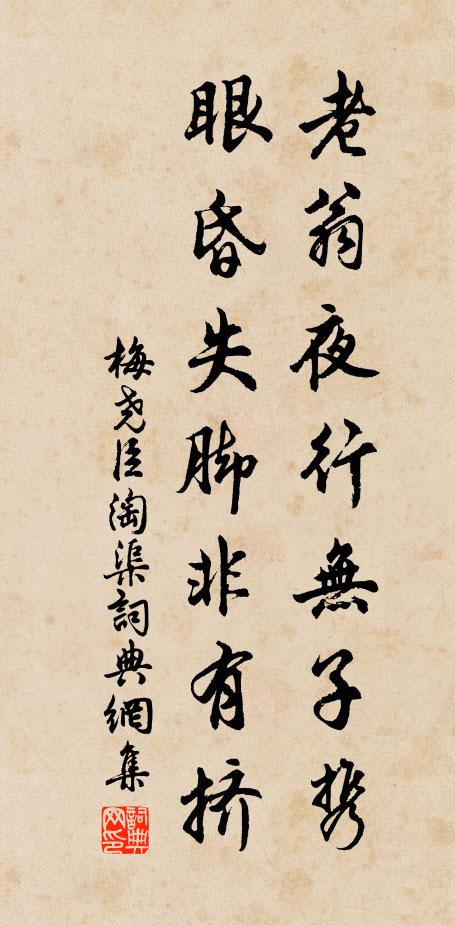 老翁夜行無子携
眼昏失脚非有挤
梅尧臣淘渠詞典網集
詞典网印